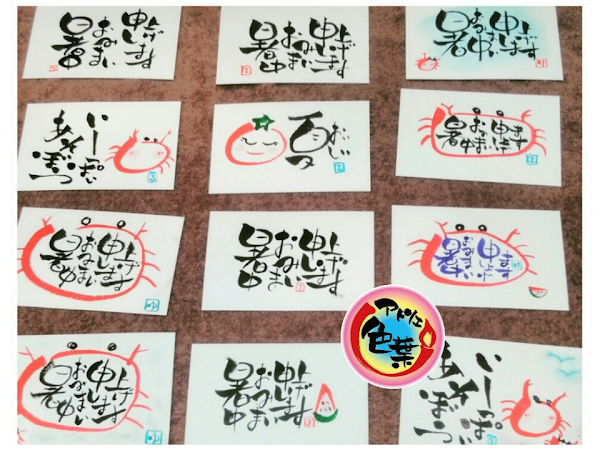 暑中
おみまい
申し上げます
暑中
おみまい
申し上げます
暑中
おみまい
申します
いーっぱい
あそぼっ
夏
暑中
おみまい
申します
暑中
おみまい
申し上げます
暑中
おみまい
申し上げます
暑中
おみまい
申します
暑中
おみまい
申し上げます
暑中
おみまい
申し上げます
いーっぱい
あそぼっ
アトリエ
色葉